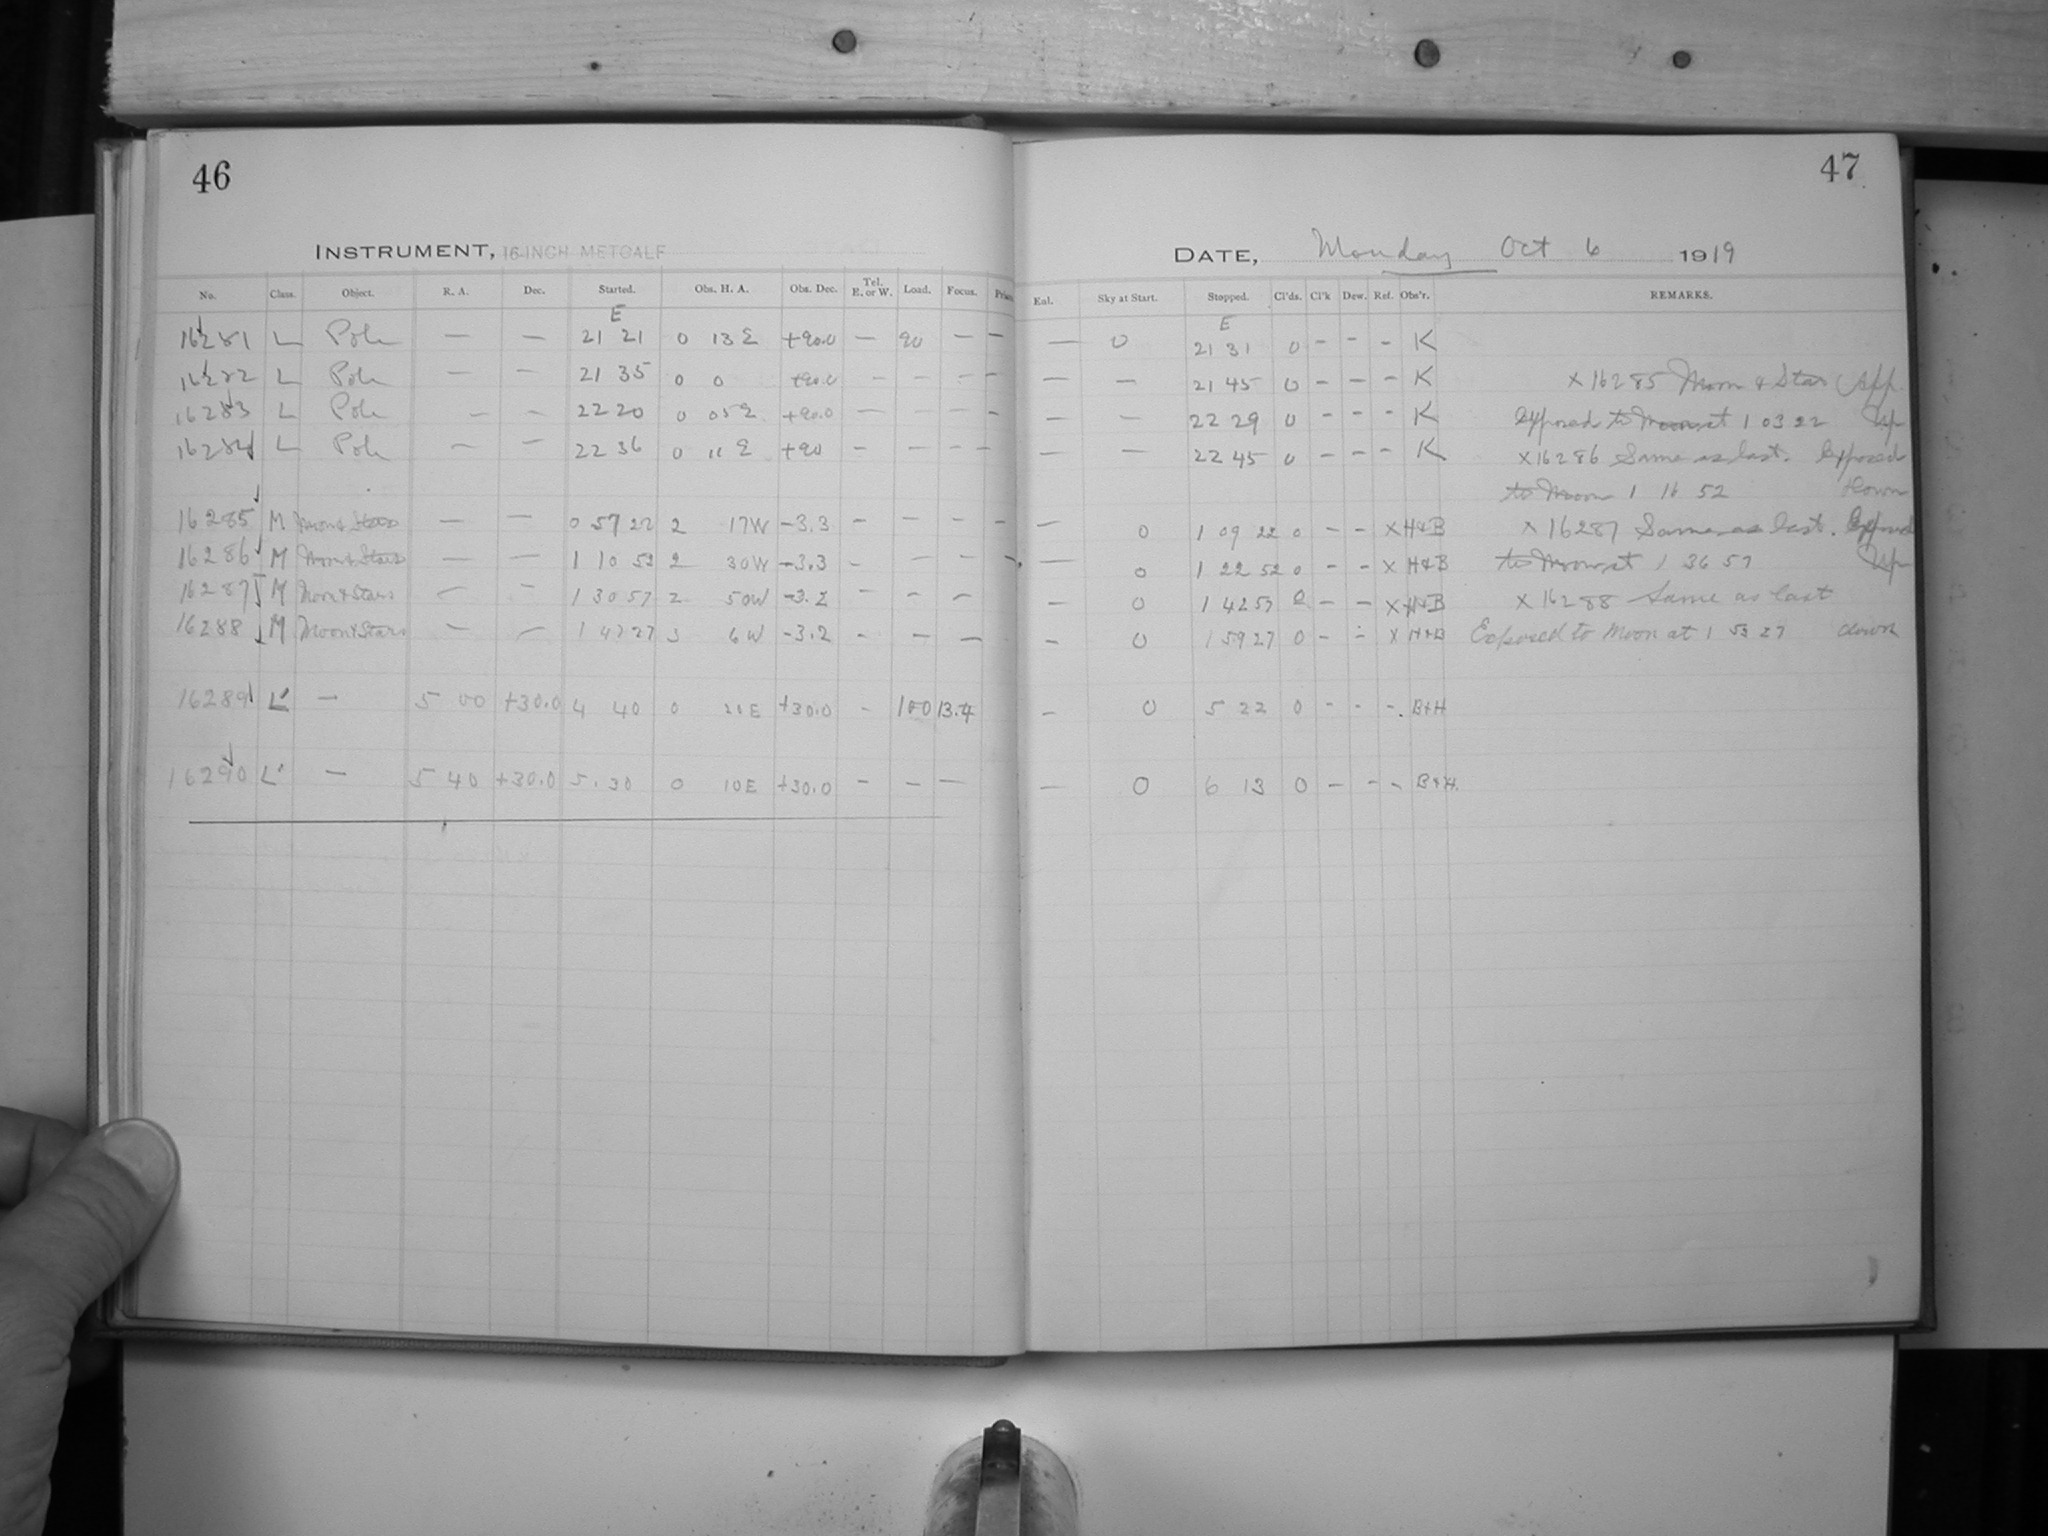 46
INSTRUMENT, 16-INCH METCALF
No. Class. Object. R. A. Dec. Started. Obs. H. A. Obs. Dec. Tel. E. or W. Load. Focus.
E
16281 L Pole — — 21 21 0 13 E +90.0 — 90 — —
16282 L Pole — — 21 35 0 0 +90.0 — — — —
16283 L Pole — — 22 20 0 05 E +90.0 — — — —
16284 L Pole — — 22 36 0 11 E +90 — — — —
16285 M Moon & Stars — — 0 57 22 2 17W -3.3 — — — —
16286 M Moon & Stars — — 1 10 52 2 30W -3.3 — — — —
16287 M Moon & Stars — — 1 30 57 2 50W -3.2 — — —
16288 M Moon & Stars — — 1 47 27 3 6W -3.2 — — —
16289 L' — 5 00 +30.0 4 40 0 20E +30.0 — 100 13.4
16290 L' — 5 40 +30.0 5.30 0 10E +30.0 — — —
47
DATE, Monday Oct 6 1919
Sky at Start. Stopped. Cl'ds. Cl'k Dew. Ref. Obs'r. REMARKS.
E
— 0 21 31 0 - - - K
— — 21 45 0 - - - K x 16285 Moon & Star
— — 22 29 0 - - - K Exposed to Moon at 1 03 22 Up
— — 22 45 0 - - - K x 16286 Same as last. Exposed
to Moon 1 16 52 down
— 0 1 09 22 0 - - x H&B x 16287 Same as last. Exposed
— 0 1 22 52 0 - - x H&B to Moon at 1 36 57 Up
— 0 1 42 57 0 - - x H&B x 16288 Same as last
— 0 1 59 27 0 - - x H&B Exposed to Moon at 1 53 27 down
— 0 5 22 0 - - - B&H
— 0 6 13 0 - - - B&H.